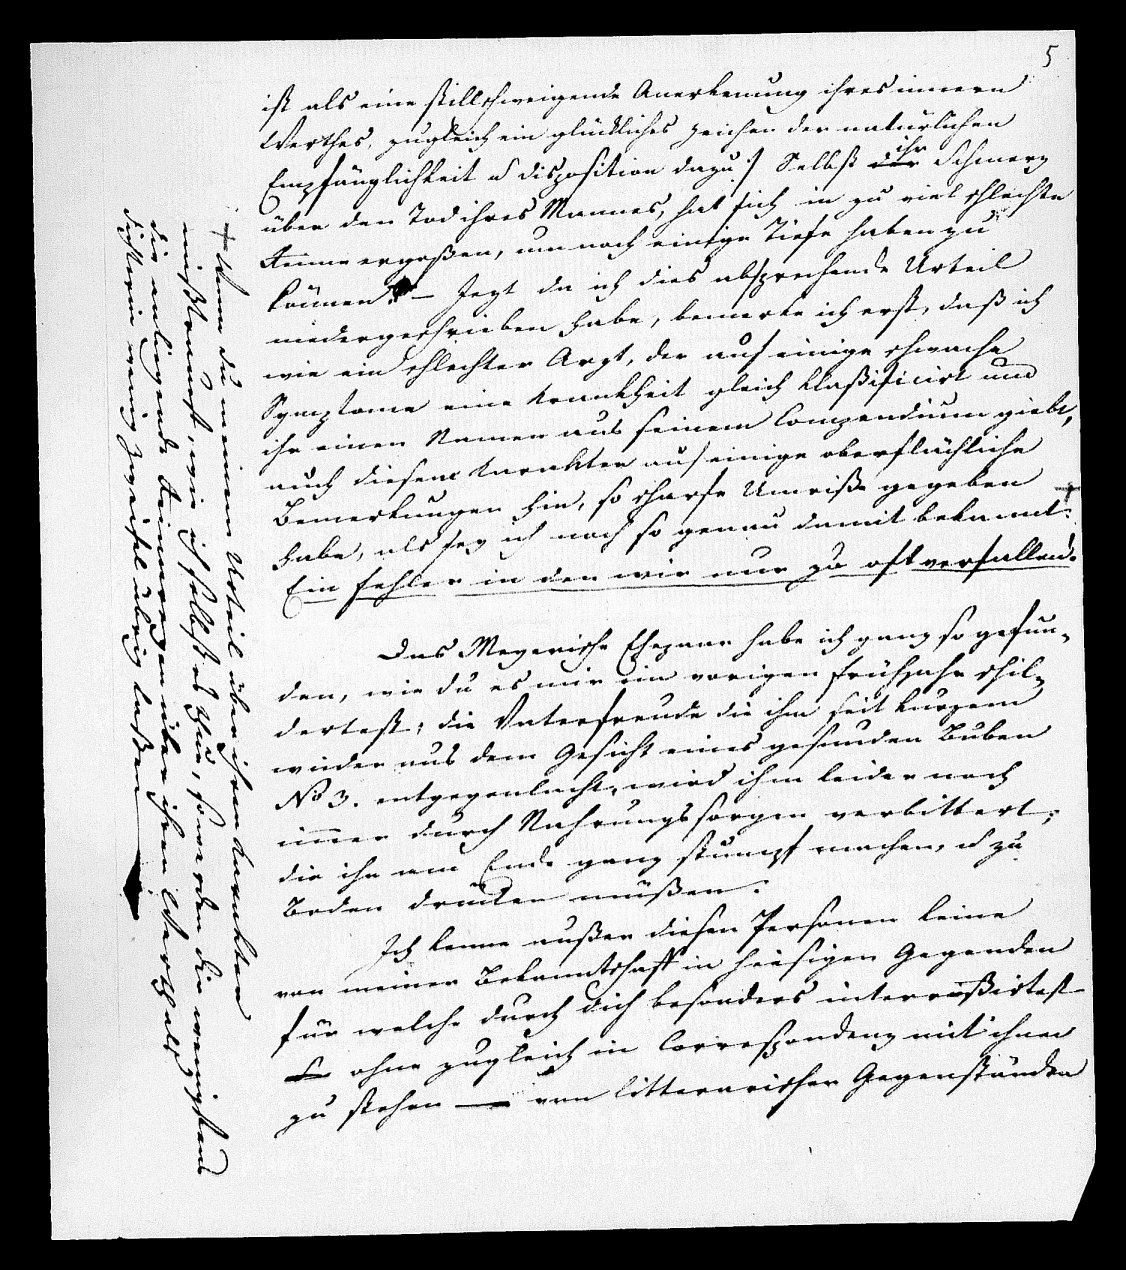 5
ist als eine stillschweigende Anerkenung ihres innern
Werthes, zugleich ein glückliches Zeichen der natürlichen
Empfänglichkeit u disposition dazu!) Selbst der ihr Schmerz
über den Tod ihres Mannes, hat sich in zu viel schlechte
Reime ergoßen, um noch einige Tiefe haben zu
können. – Jezt da ich dies absprechende Urteil
niedergeschrieben habe, bemerke ich erst, daß ich
wie ein schlechter Arzt, der auf einige schwache
Symptome eine Krankheit gleich klaßificirt und
ihr einen Namen aus seinem Compendium giebt,
auch diesem Karakter auf einige oberflächliche
Bemerkungen hin, so scharfe Umriße gegeben
habe, als sey ich noch so genau damit bekannt. +
Ein Fehler in den wir nur zu oft verfallen!
Das Meyerische Ehepaar habe ich ganz so gefun-
den, wie du es mir im vorigen Frühjahr schil-
dertest; die Vaterfreude die ihm seit kurzem
wieder aus dem Gesicht eines gesunden Buben
No 3. entgegenlacht, wird ihm leider noch
immer durch Nahrungssorgen verbittert;
die ihn am Ende ganz stumpf machen, u zu
Boden drücken müßen.
Ich kenne außer diesen Personen keine
von meiner Bekanntschaft in hiesigen Gegenden
für welche durch dich besonders interreßirtest
ohne zugleich in Correspondenz mit ihnen
zu stehen — von litterarischen Gegenständen
+ Wenn du meinem Urteil über ihren Karakter
mißtraust, wie ich selbst es thue, so werden die wenigstens
die anliegende Reimereyen über ihren Werth als
dichterin wenig Zweifel übrig laßen —